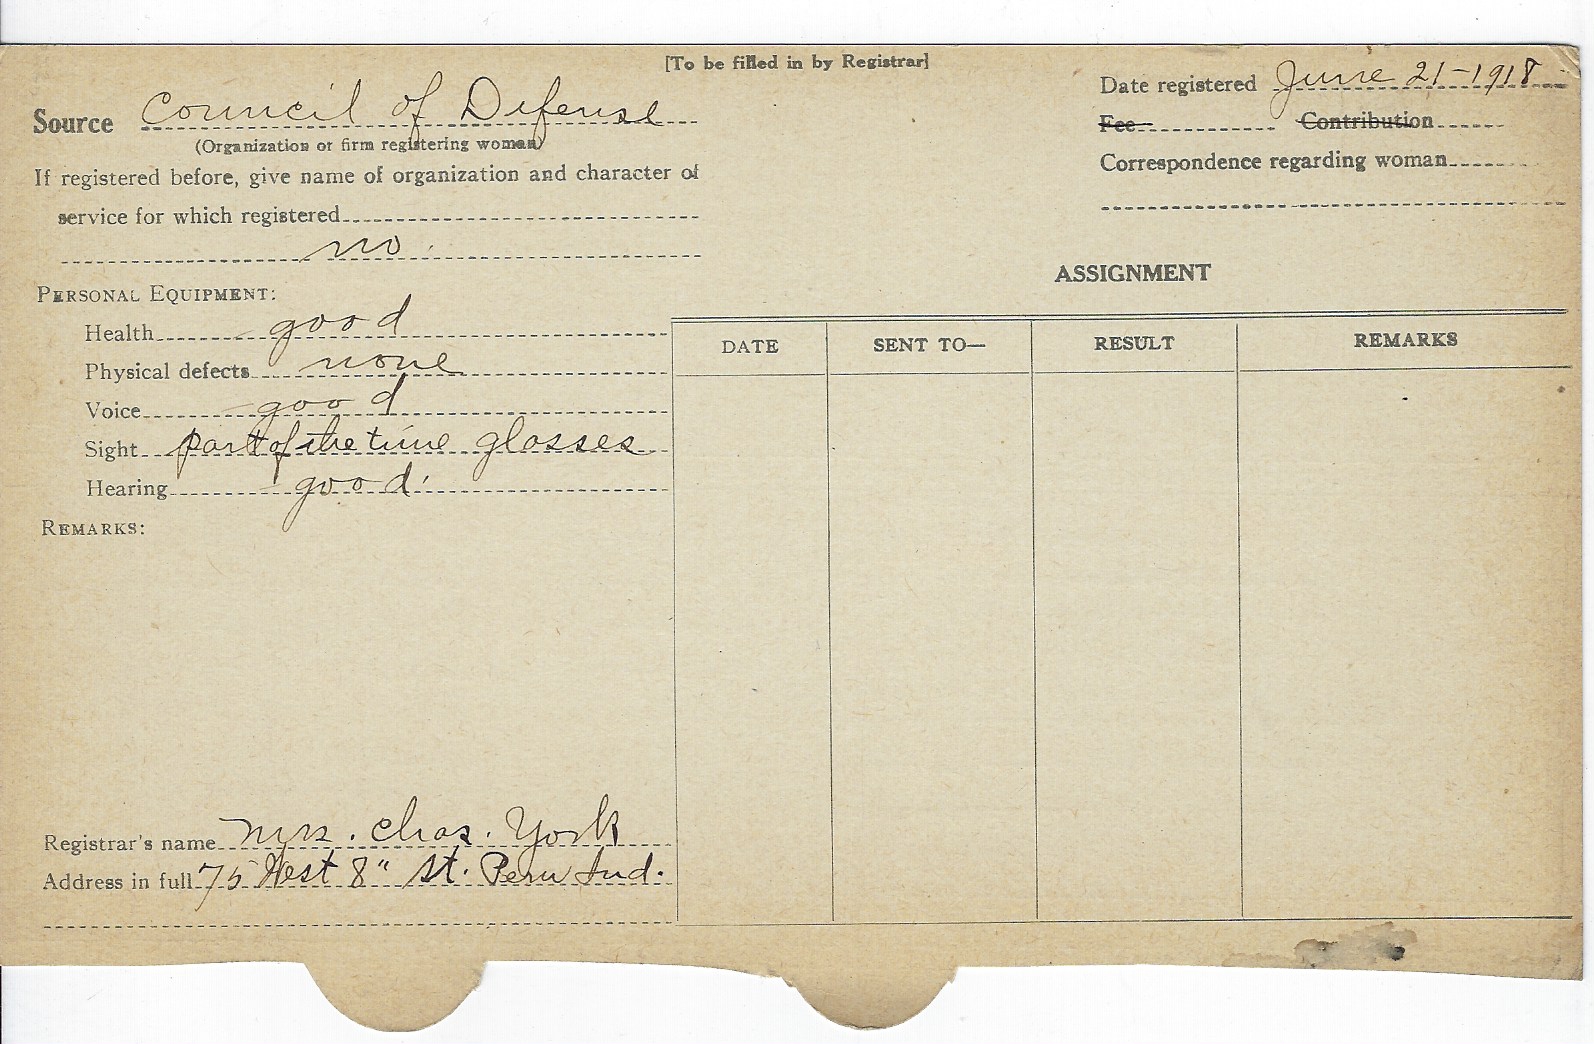 [To be filled in by Registrar]
Source Council of Defense
(Organization or firm registering woman)
If registered before, give name of organization and character of
service for which registered
no.
PERSONAL EQUIPMENT:
Health good
Physical defects none
Voice good
Sight part of the time glasses
Hearing good
REMARKS:
Registrar's name Mrs. Chas. York
Address in full 75 West 8" St. Peru Ind.
Date registered June 21-1918
Fee Contribution
Correspondence regarding woman
ASSIGNMENT
DATE SENT TO— RESULT REMARKS